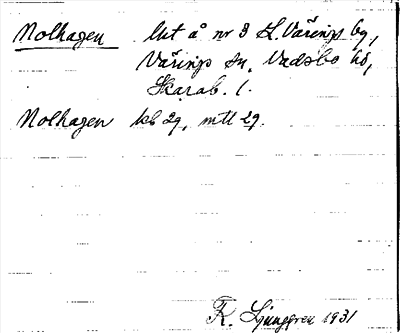 Nolhagen lut å nr 3 L. Värings by,
Värings sn, Vadsbo hd,
Skarab. l.
Nolhagen kb 29, mtl 29.
R. Ljunggren 1931